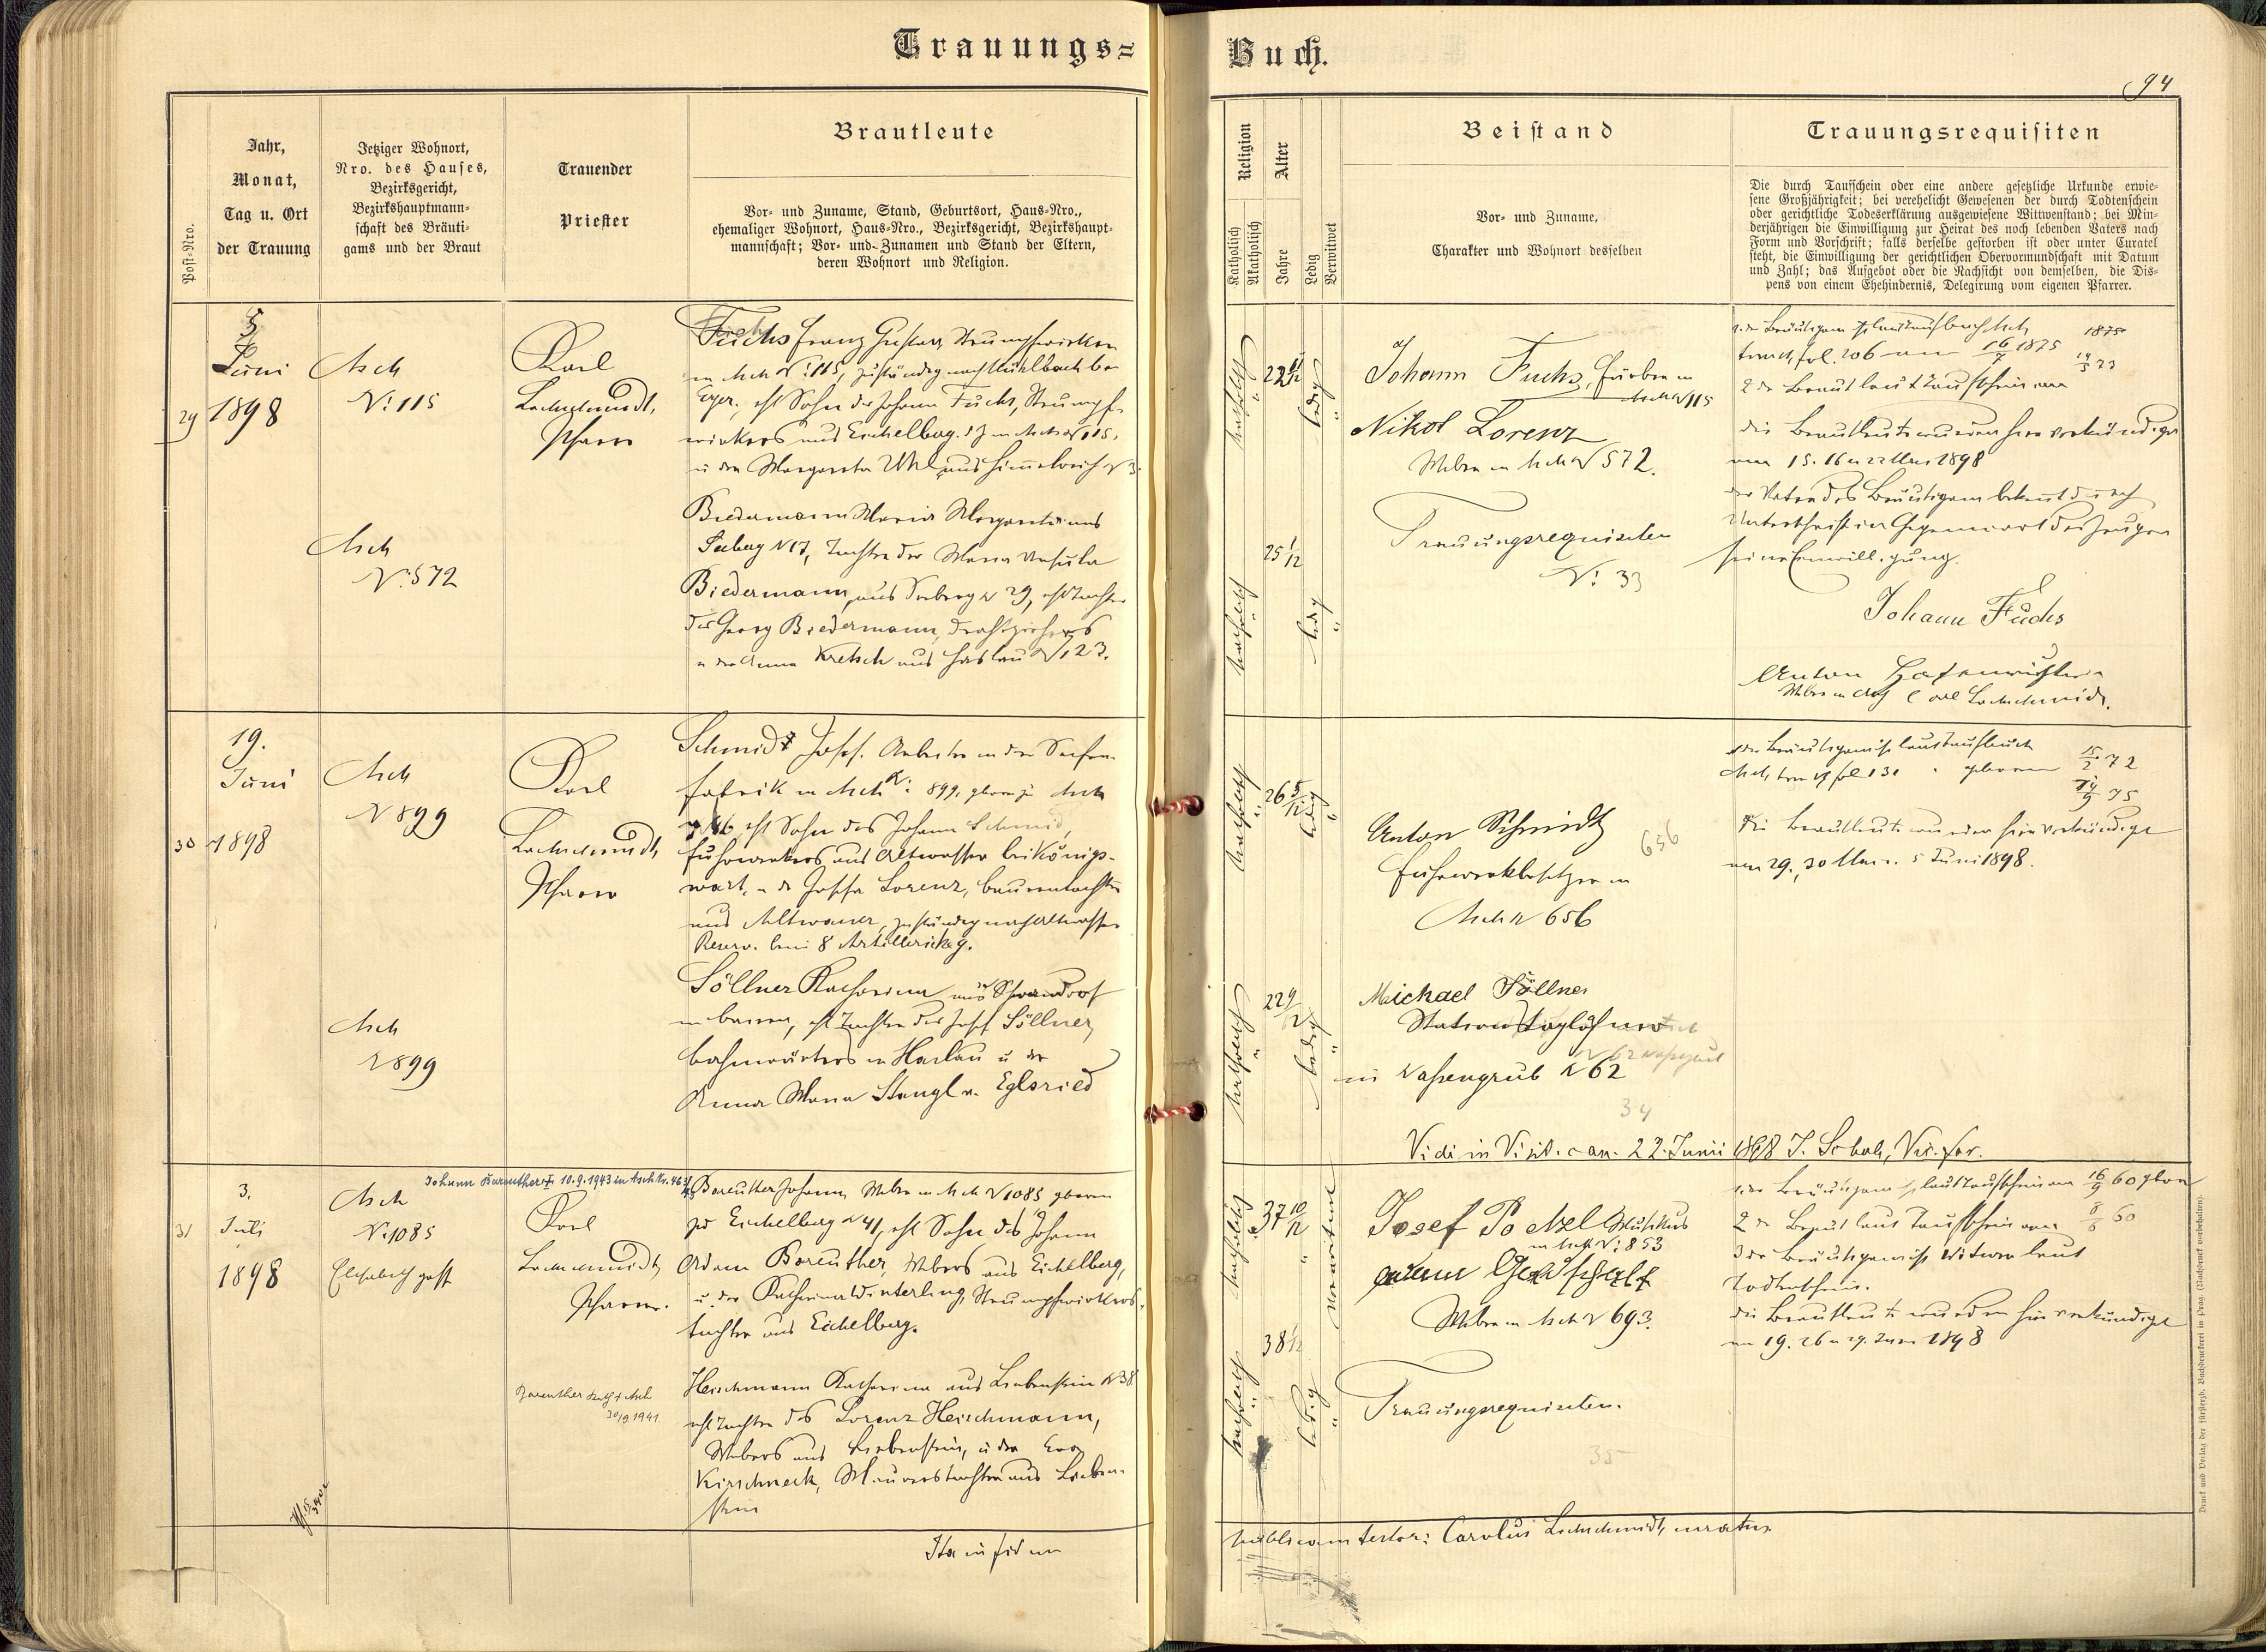 Trauungs=
Buch.
94
Post-Nro.
Jahr,
Monat,
Tag u. Ort
der Trauung
Jetziger Wohnort,
Nro. des Hauses,
Bezirksgericht,
Bezirkshauptmann-
schaft des Bräuti-
gams und der Braut
Trauender
Priester
Brautleute
Vor- und Zuname, Stand, Geburtsort, Haus-Nro.,
ehemaliger Wohnort, Haus-Nro., Bezirksgericht, Bezirkshaupt-
mannschaft; Vor- und Zunamen und Stand der Eltern,
deren Wohnort und Religion.
Religion
Katholisch
Akatholisch
Alter
Jahre
Ledig
Verwitwet
Beistand
Vor- und Zuname,
Charakter und Wohnort desselben
Trauungsrequisiten
Die durch Taufschein oder eine andere gesetzliche Urkunde erwie-
sene Großjährigkeit; bei verehelicht Gewesenen der durch Todtenschein
oder gerichtliche Todeserklärung ausgewiesene Wittwenstand; bei Min-
derjährigen die Einwilligung zur Heirat des noch lebenden Vaters nach
Form und Vorschrift; falls derselbe gestorben ist oder unter Curatel
steht, die Einwilligung der gerichtlichen Obervormundschaft mit Datum
und Zahl; das Aufgebot oder die Nachsicht von demselben, die Dis-
pens von einem Ehehindernis, Delegirung vom eigenen Pfarrer.
29
5
Juni
1898
Asch
N: 115
Asch
N: 572
Karl
Lochschmidt,
Pfarrer
Fuchs Franz Gustav, Strumpfwirker
in Asch N: 115, zuständig nach Mühlbach bei
Eger, ehl Sohn des Johann Fuchs, Strumpf-
wirkers aus Eichelberg, in Asch N 115,
u der Margareta Uhl aus Himmelreich N 3.
Biedermann Maria Margareta aus
Seeberg N 17, Tochter der Maria Ursula
Biedermann, aus Seeberg N 29, ehl Tochter
des Georg Biedermann, Drahtziehers
u der Anna Kretsch aus Haslau N 123.
katholisch
22 11/12
ledig
katholisch
25 1/12
ledig
Johann Fuchs, Färber in
Asch N 115
Nikol Lorenz
Weber in Asch N 572.
Trauungsrequisiten
N: 33
1. der Bräutigam ist laut Taufbuch Asch 1875
fol. 206 am 16/7 1875
2 die Braut laut Taufschein am
die Brautleute wurden hier verkündiget
am 15. 16 u 22 Mai 1898
der Vater des Bräutigams bekennt durch
Unterschrift in Gegenwart der Zeugen
seine Einwilligung.
Johann Fuchs
Anton
Weber in Asch Carl Lochschmidt.
30
19.
Juni
1898
Asch
N 899
Asch
N 899
Karl
Lochschmidt,
Pfarrer
Schmidt Josef. Arbeiter in der Seifen-
fabrik in Asch N: 899, geboren zu Asch
ehl Sohn des Johann Schmid,
Fuhrwerkers aus Altwasser bei Königs-
wart, u der Josefa Lorenz, Bauerntochter
aus Altwasser, zuständig nach Altwasser
Reserv. beim 8 Artillerieregt.
Söllner Katharina aus Schwandorf
in Baiern, ehl Tochter des Josef Söllner,
Bahnwärters in Haslau u der
Anna Maria Stangl v. Eglsried
katholisch
26 5/12
ledig
katholisch
22 9/12
ledig
Anton Schmidt 656
Fuhrwerkbesitzer in
Asch N 656
Michael Söllner
Stationstaglöhner
in Nassengrub N 62
34
der Bräutigam ist laut Taufbuch 15/2 72
Asch, tom 17 fol 131 geboren
14/9 75
die Brautleute wurden hier verkündiget
am 29., 30 Mai u. 5 Juni 1898.
Vidi in Visit. can. 22. Junii 1898 J. Scholz, Vic. for.
31
3.
Juli
1898
Asch
N: 1085
Johann Bareuther † 10.9.1943 in Asch Nr. 463/43
Karl
Lochschmidt,
Pfarrer.
Bareuther Kath † Asch
30/9 1941
Bareuther Johann, Weber in Asch N 1085 geboren
zu Eichelberg N 41, ehl Sohn des Johann
Adam Bareuther, Webers aus Eichelberg,
u. der Katharina Winterling, Strumpfwirkers-
tochter aus Eichelberg.
Heischmann Katharina aus Liebenstein N 38
ehl Tochter des Lorenz Heischmann,
Webers aus Liebenstein, u der Eva
Kirschneck, Maurerstochter aus Lieben-
stein
katholisch
37 10/12
verwitwet
katholisch
38 1/12
ledig
Josef Poetzl Musikus
in Asch N: 853
Weber in Asch N 693.
Trauungsrequisiten.
35
1. der Bräutigam ist laut Taufschein am 16/9 60 geboren
2 die Braut laut Taufschein am 8/6 60
3 der Bräutigam ist Witwer laut
Todtenschein.
die Brautleute wurden hier verkündiget
am 19. 26 u 29. Juni 1898
Ita in fidem
publicam testor: Carolus Lochschmidt, curatus
Druck und Verlag der fürsterzb. Buchdruckerei in Prag. (Nachdruck verboten).